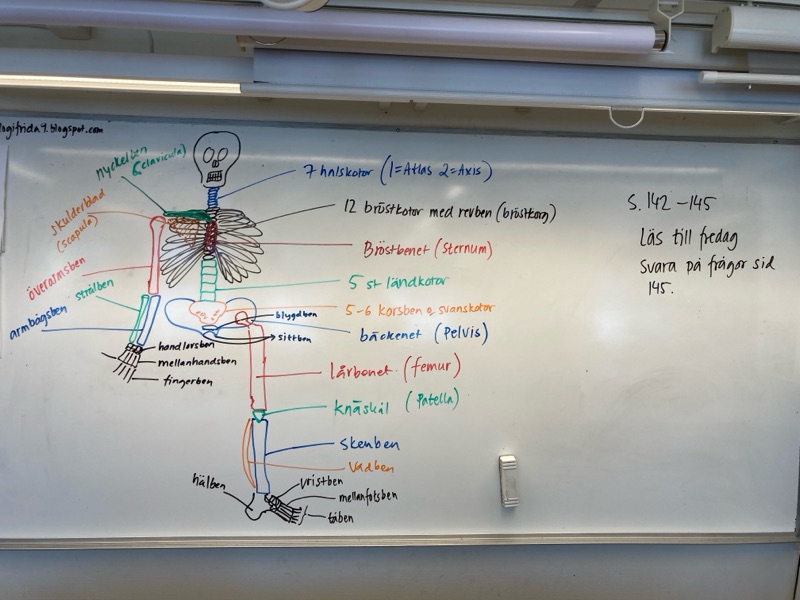 ogifrida9.blogspot.com
nyckelben
(clavicula)
skulderblad
(scapula)
överarmsben
strålben
armbågsben
handlovsben
mellanhandsben
fingerben
7 halskotor (1=Atlas 2=Axis)
12 bröstkotor med revben (bröstkorg)
Bröstbenet (sternum)
5 st ländkotor
5-6 korsben & svanskotor
blygdben
bäckenet (pelvis)
sittben
lårbenet (femur)
knäskål (Patella)
skenben
vadben
hälben
vristben
mellanfotsben
tåben
s. 142-145
Läs till fredag
svara på frågor sid
145.